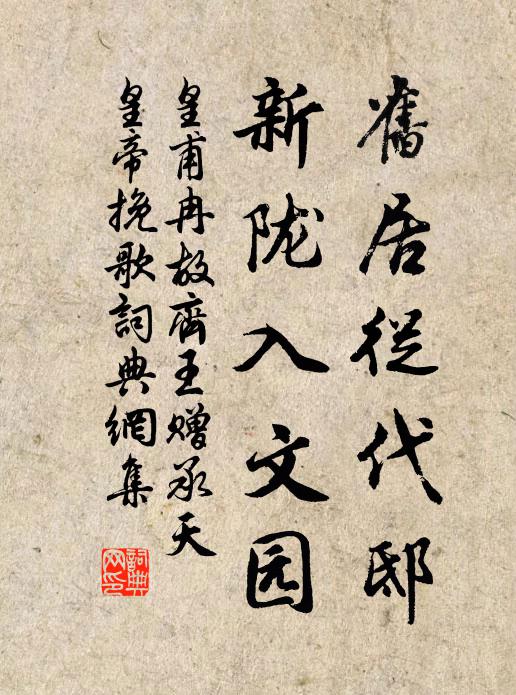 舊居從代邸
新陇入文园
皇甫冉故齊王赠承天
皇帝挽歌詞典網集
詞典
网印